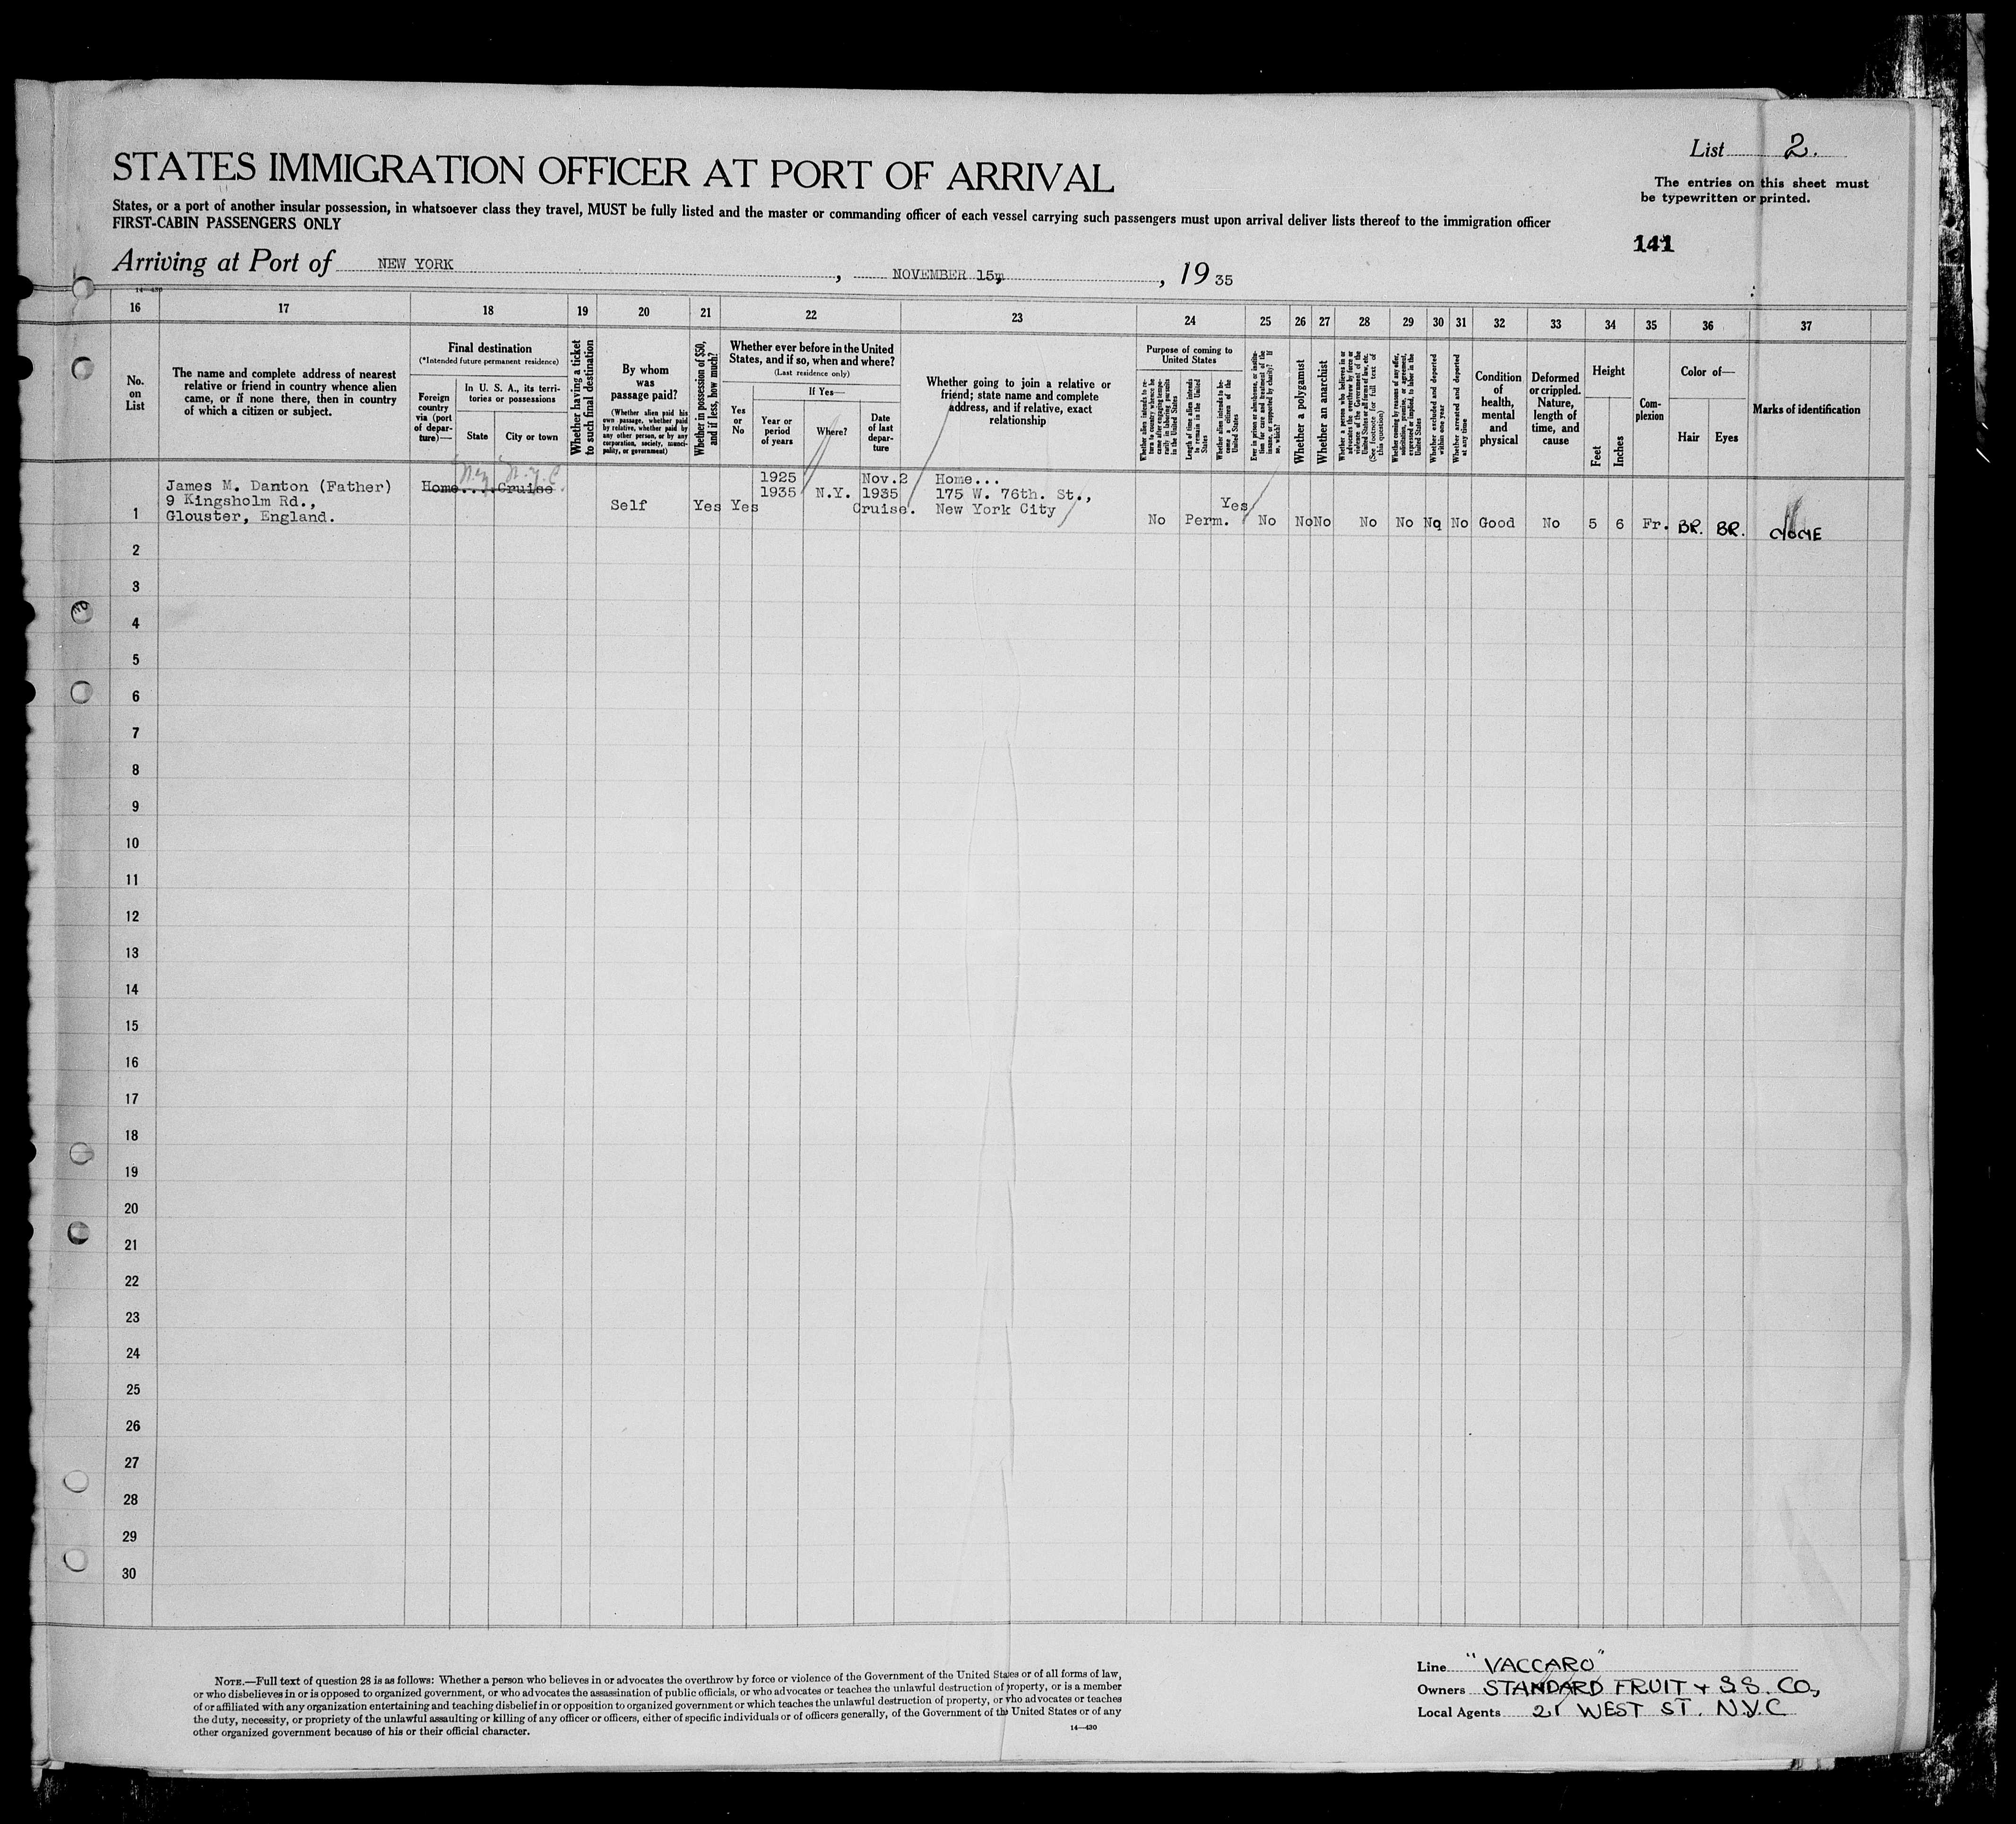 STATES IMMIGRATION OFFICER AT PORT OF ARRIVAL
States, or a port of another insular possession, in whatsoever class they travel, MUST be fully listed and the master or commanding officer of each vessel carrying such passengers must upon arrival deliver lists thereof to the immigration officer
FIRST-CABIN PASSENGERS ONLY
List 2.
The entries on this sheet must
be typewritten or printed.
141
Arriving at Port of NEW YORK, NOVEMBER 15, 19 35
14—430
16 17 18 19 20 21 22 23 24 25 26 27 28 29 30 31 32 33 34 35 36 37
No.
on
List
The name and complete address of nearest
relative or friend in country whence alien
came, or if none there, then in country
of which a citizen or subject.
Final destination
(*Intended future permanent residence)
Foreign
country
via (port
of depar-
ture)—
In U. S. A., its terri-
tories or possessions
State
City or town
Whether having a ticket
to such final destination
By whom
was
passage paid?
(Whether alien paid his
own passage, whether paid
by relative, whether paid by
any other person, or by any
corporation, society, munici-
pality, or government)
Whether in possession of $50,
and if less, how much?
Whether ever before in the United
States, and if so, when and where?
(Last residence only)
Yes
or
No
If Yes—
Year or
period
of years
Where?
Date
of last
depar-
ture
Whether going to join a relative or
friend; state name and complete
address, and if relative, exact
relationship
Purpose of coming to
United States
Whether alien intends to re-
turn to country whence he
came after engaging tempo-
rarily in laboring pursuits
in the United States
Length of time alien intends
to remain in the United
States
Whether alien intends to be-
come a citizen of the
United States
Ever in prison or almshouse, or institu-
tion for care and treatment of the
insane, or supported by charity? If
so, which?
Whether a polygamist
Whether an anarchist
Whether a person who believes in or
advocates the overthrow by force or
violence of the Government of the
United States or all forms of law, etc.
(See footnote for full text of
this question)
Whether coming by reasons of any offer,
solicitation, promise, or agreement,
expressed or implied, to labor in the
United States
Whether excluded and deported
within one year
Whether arrested and deported
at any time
Condition
of
health,
mental
and
physical
Deformed
or crippled.
Nature,
length of
time, and
cause
Height
Feet
Inches
Com-
plexion
Color of—
Hair
Eyes
Marks of identification
James M. Danton (Father)
9 Kingsholm Rd.,
Glouster, England.
N.Y. N.Y.C.
Home....Cruise.
Self
Yes
Yes
1925
1935
N.Y.
Nov.2
1935
Cruise.
Home...
175 W. 76th. St.,
New York City
No
Perm.
Yes
No No No No No No No Good No 5 6 Fr. BR. BR. NONE
1
2
3
4
5
6
7
8
9
10
11
12
13
14
15
16
17
18
19
20
21
22
23
24
25
26
27
28
29
30
NOTE.—Full text of question 28 is as follows: Whether a person who believes in or advocates the overthrow by force or violence of the Government of the United States or of all forms of law,
or who disbelieves in or is opposed to organized government, or who advocates the assassination of public officials, or who advocates or teaches the unlawful destruction of property, or is a member
of or affiliated with any organization entertaining and teaching disbelief in or opposition to organized government or which teaches the unlawful destruction of property, or who advocates or teaches
the duty, necessity, or propriety of the unlawful assaulting or killing of any officer or officers, either of specific individuals or of officers generally, of the Government of the United States or of any
other organized government because of his or their official character.
14—430
Line "VACCARO"
Owners STANDARD FRUIT + S.S. CO,
Local Agents 21 WEST ST. N.Y.C